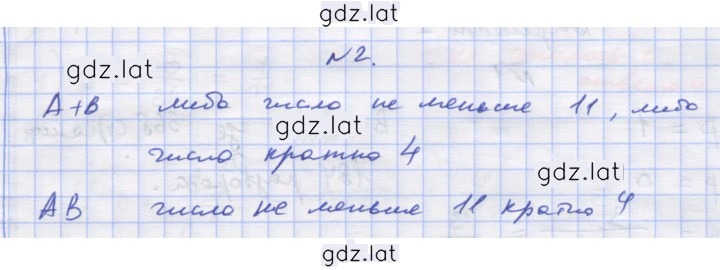 gdz.lat
N2.
gdz.lat
A+B либо число не меньше 11, либо
gdz.lat
число кратно 4
gdz.lat
AB число не меньше 11 кратно 4
gdz.lat